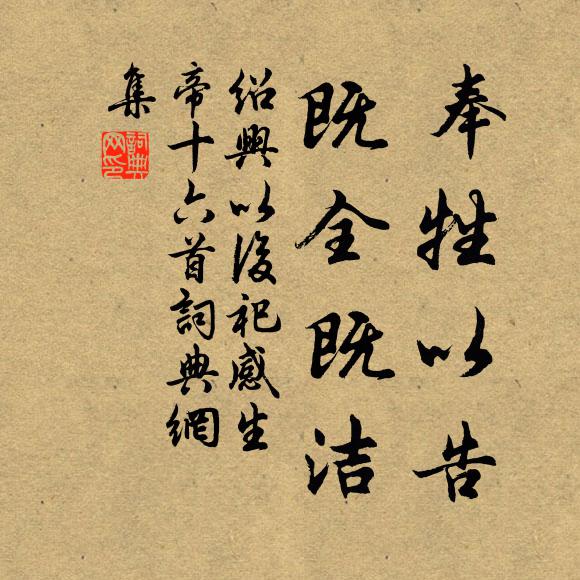 奉牲以告
既全既洁
紹興以後祀感生
帝十六首詞典網
集
詞典
网印